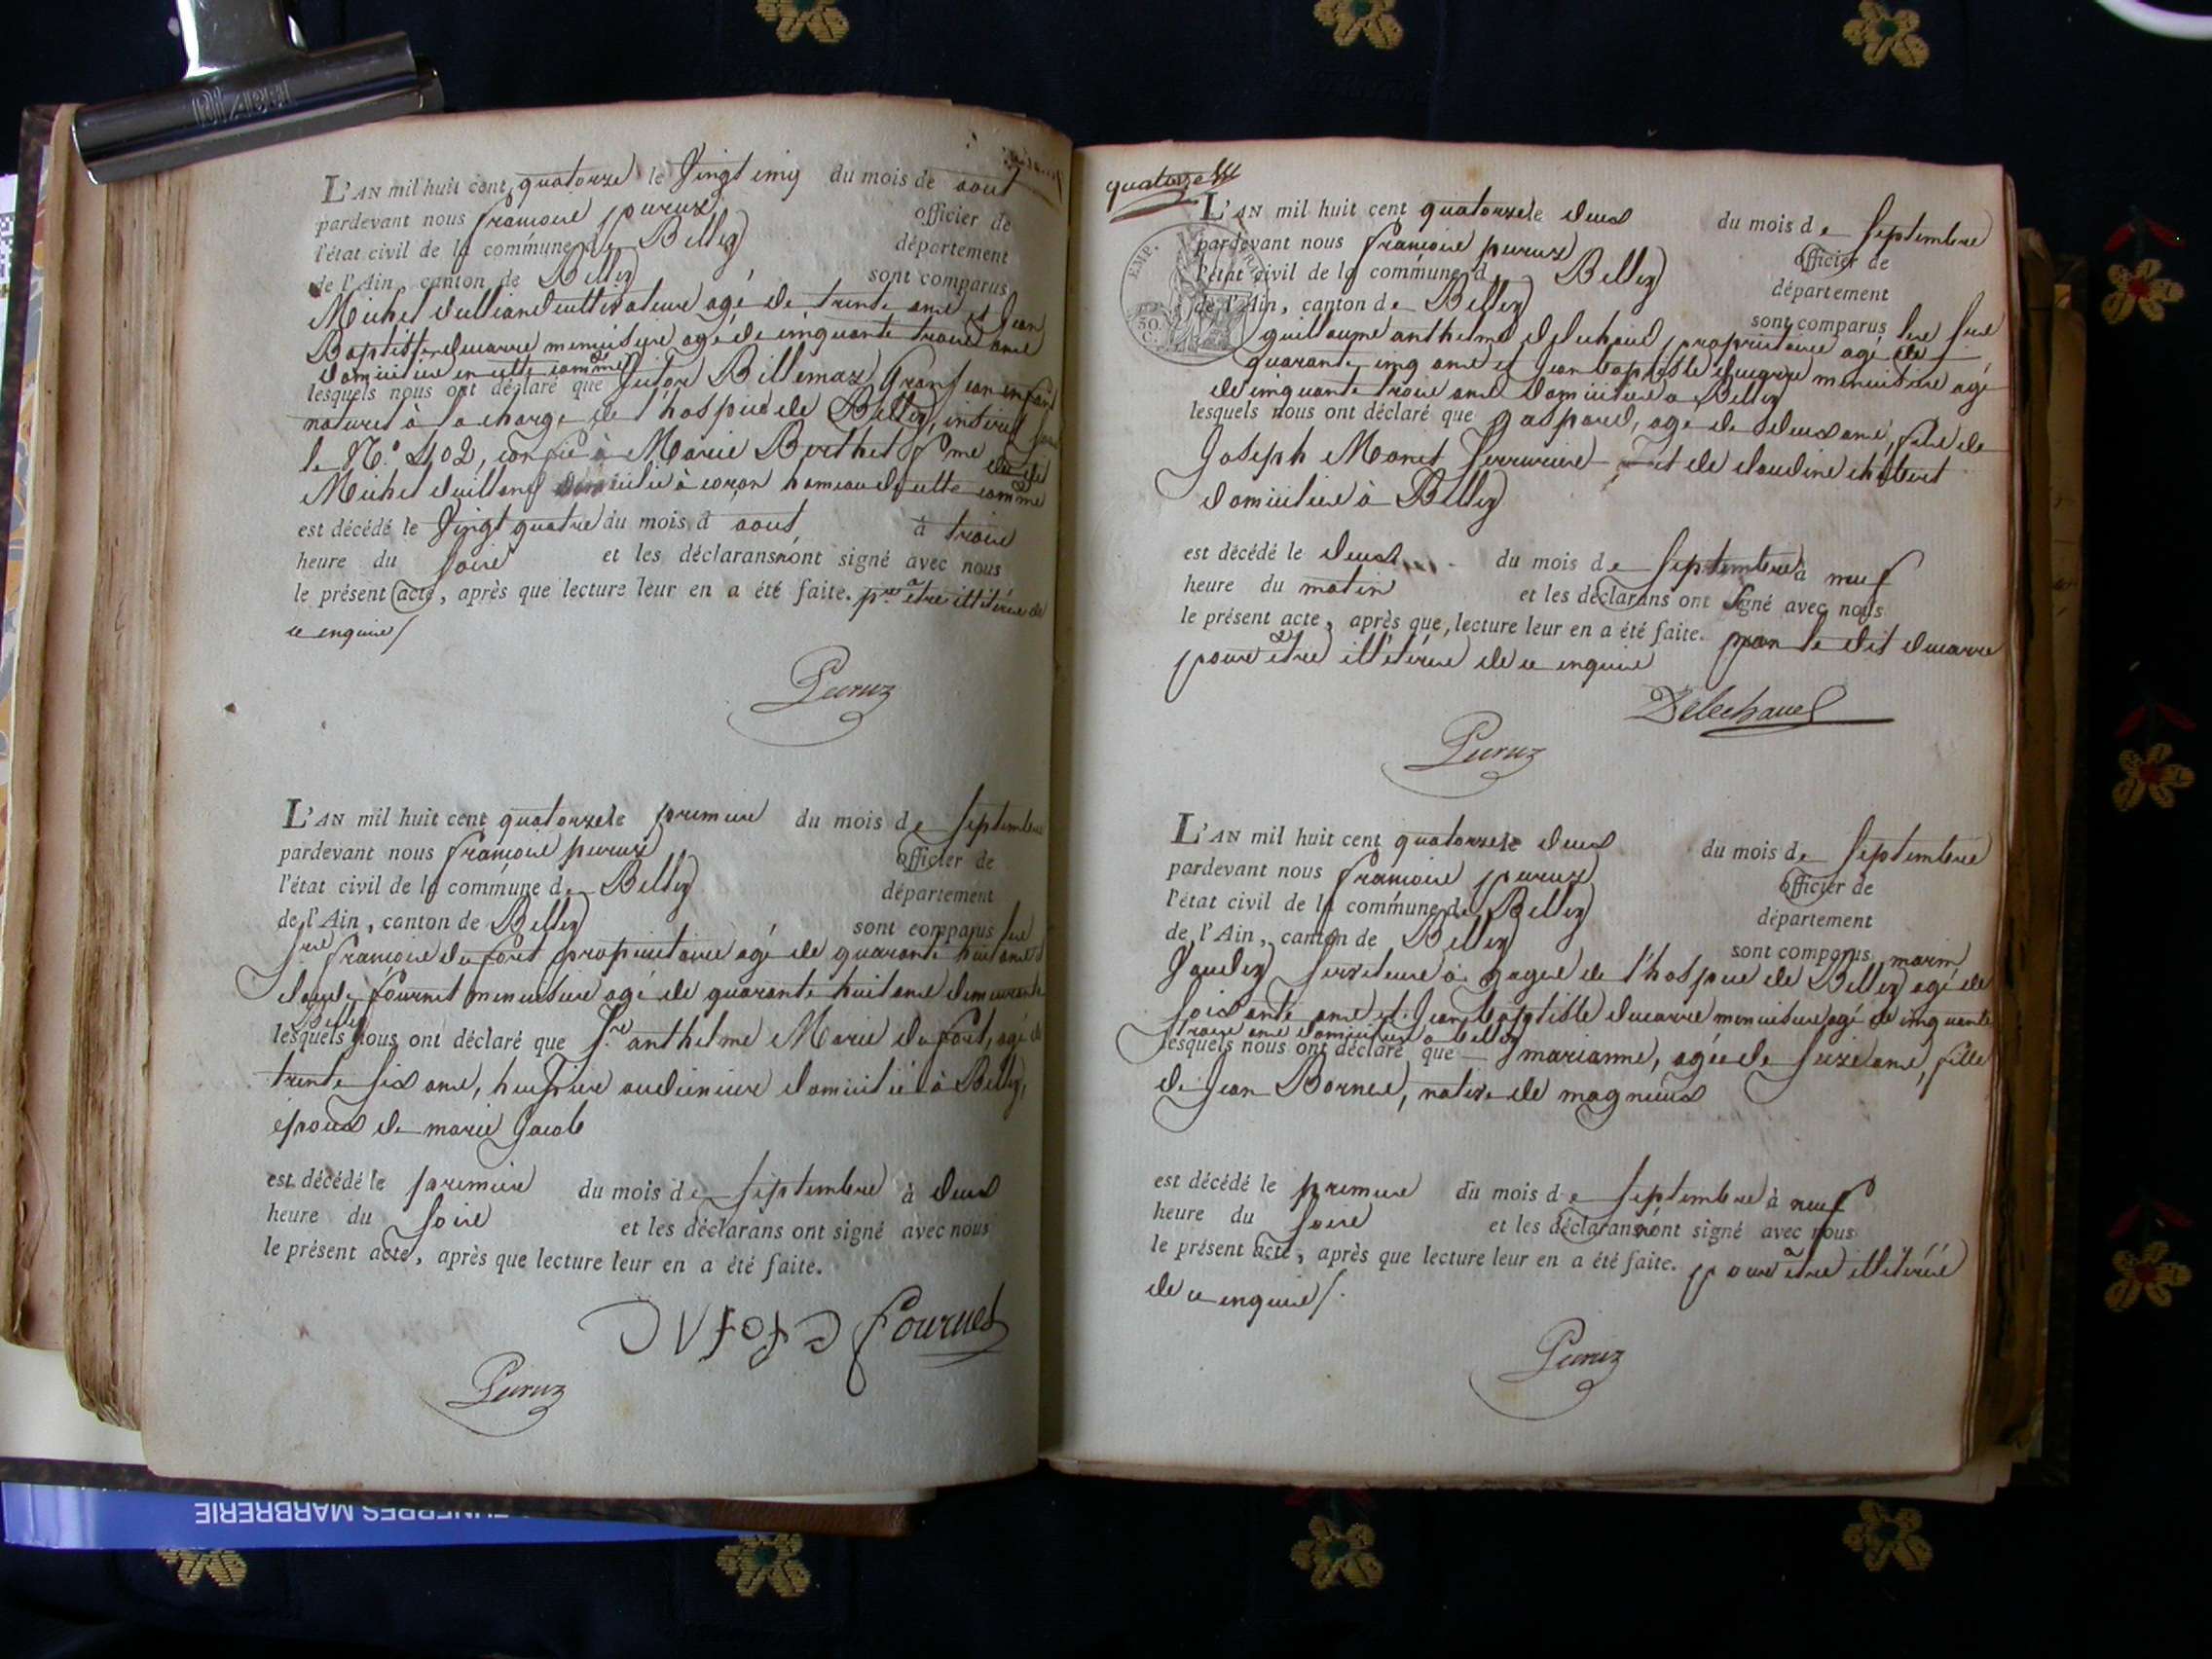 L'AN mil huit cent quatorze le vingt cinq du mois de aout
pardevant nous françois peruz officier de
l'état civil de la commune de Belley département
de l'Ain, canton de Belley sont comparus
Michel cultivateur agé de trente ans et Jean
Baptiste ducarre menuisier agé de cinquante trois ans
domiciliés en cette comme
lesquels nous ont déclaré que Billemaz enfant
naturel à la charge de l'hospice de Belley, inscrit sous
le N.° 402, confié à Marie Berthet fme du dit
Michel à coron hameau de cette comme
est décédé le vingt quatre du mois d aout à trois
heure du soir et les déclarans n'ont signé avec nous
le présent acte, après que lecture leur en a été faite. pr être illitérés de
ce enquis
Peruz
L'AN mil huit cent quatorze le premier du mois de septembre
pardevant nous françois peruz officier de
l'état civil de la commune de Belley département
de l'Ain, canton de Belley sont comparus les
srs françois du fort propriétaire agé de quarante huit ans et
claude fournet menuisier agé de quarante huit ans demeurants
Belley
lesquels nous ont déclaré que sr anthelme Marie du fort, agé de
trente six ans, huissier audiencier domicilié à Belley,
époux de marie Jacob
est décédé le premier du mois de septembre à deux
heure du soir et les déclarans ont signé avec nous
le présent acte, après que lecture leur en a été faite.
fournet
Peruz
quatorze
EMP.
50
C.
L'AN mil huit cent quatorze le deux du mois de septembre
pardevant nous françois peruz officier de
l'état civil de la commune d Belley département
de l'Ain, canton de Belley sont comparus les srs
guillaume anthelme delechaud propriétaire agé de
quarante cinq ans et Jean baptiste ducarre menuisier agé
de cinquante trois ans domiciliés à Belley
lesquels nous ont déclaré que gaspard, agé de deux ans, fils de
Joseph Monet serrurier et de claudine
domiciliés à Belley
est décédé le deux du mois de septembre à neuf
heure du matin et les déclarans ont signé avec nous
le présent acte, après que lecture leur en a été faite. non le dit ducarre
pour être illitéré de ce enquis
Delechaud
Peruz
L'AN mil huit cent quatorze le deux du mois de septembre
pardevant nous françois peruz officier de
l'état civil de la commune de Belley département
de l'Ain, canton de Belley sont comparus marin
serviteur à gages de l'hospice de Belley agé de
soixante ans et Jean baptiste ducarre menuisier agé de cinquante
trois ans domiciliés à belley
lesquels nous ont déclaré que marianne, agée de seize ans, fille
de Jean Bornes, native de magnieux
est décédé le premier du mois de septembre à neuf
heure du soir et les déclarans n'ont signé avec nous
le présent acte, après que lecture leur en a été faite. pour être illitérés
de ce enquis
Peruz
FUNEBRES MARBRERIE